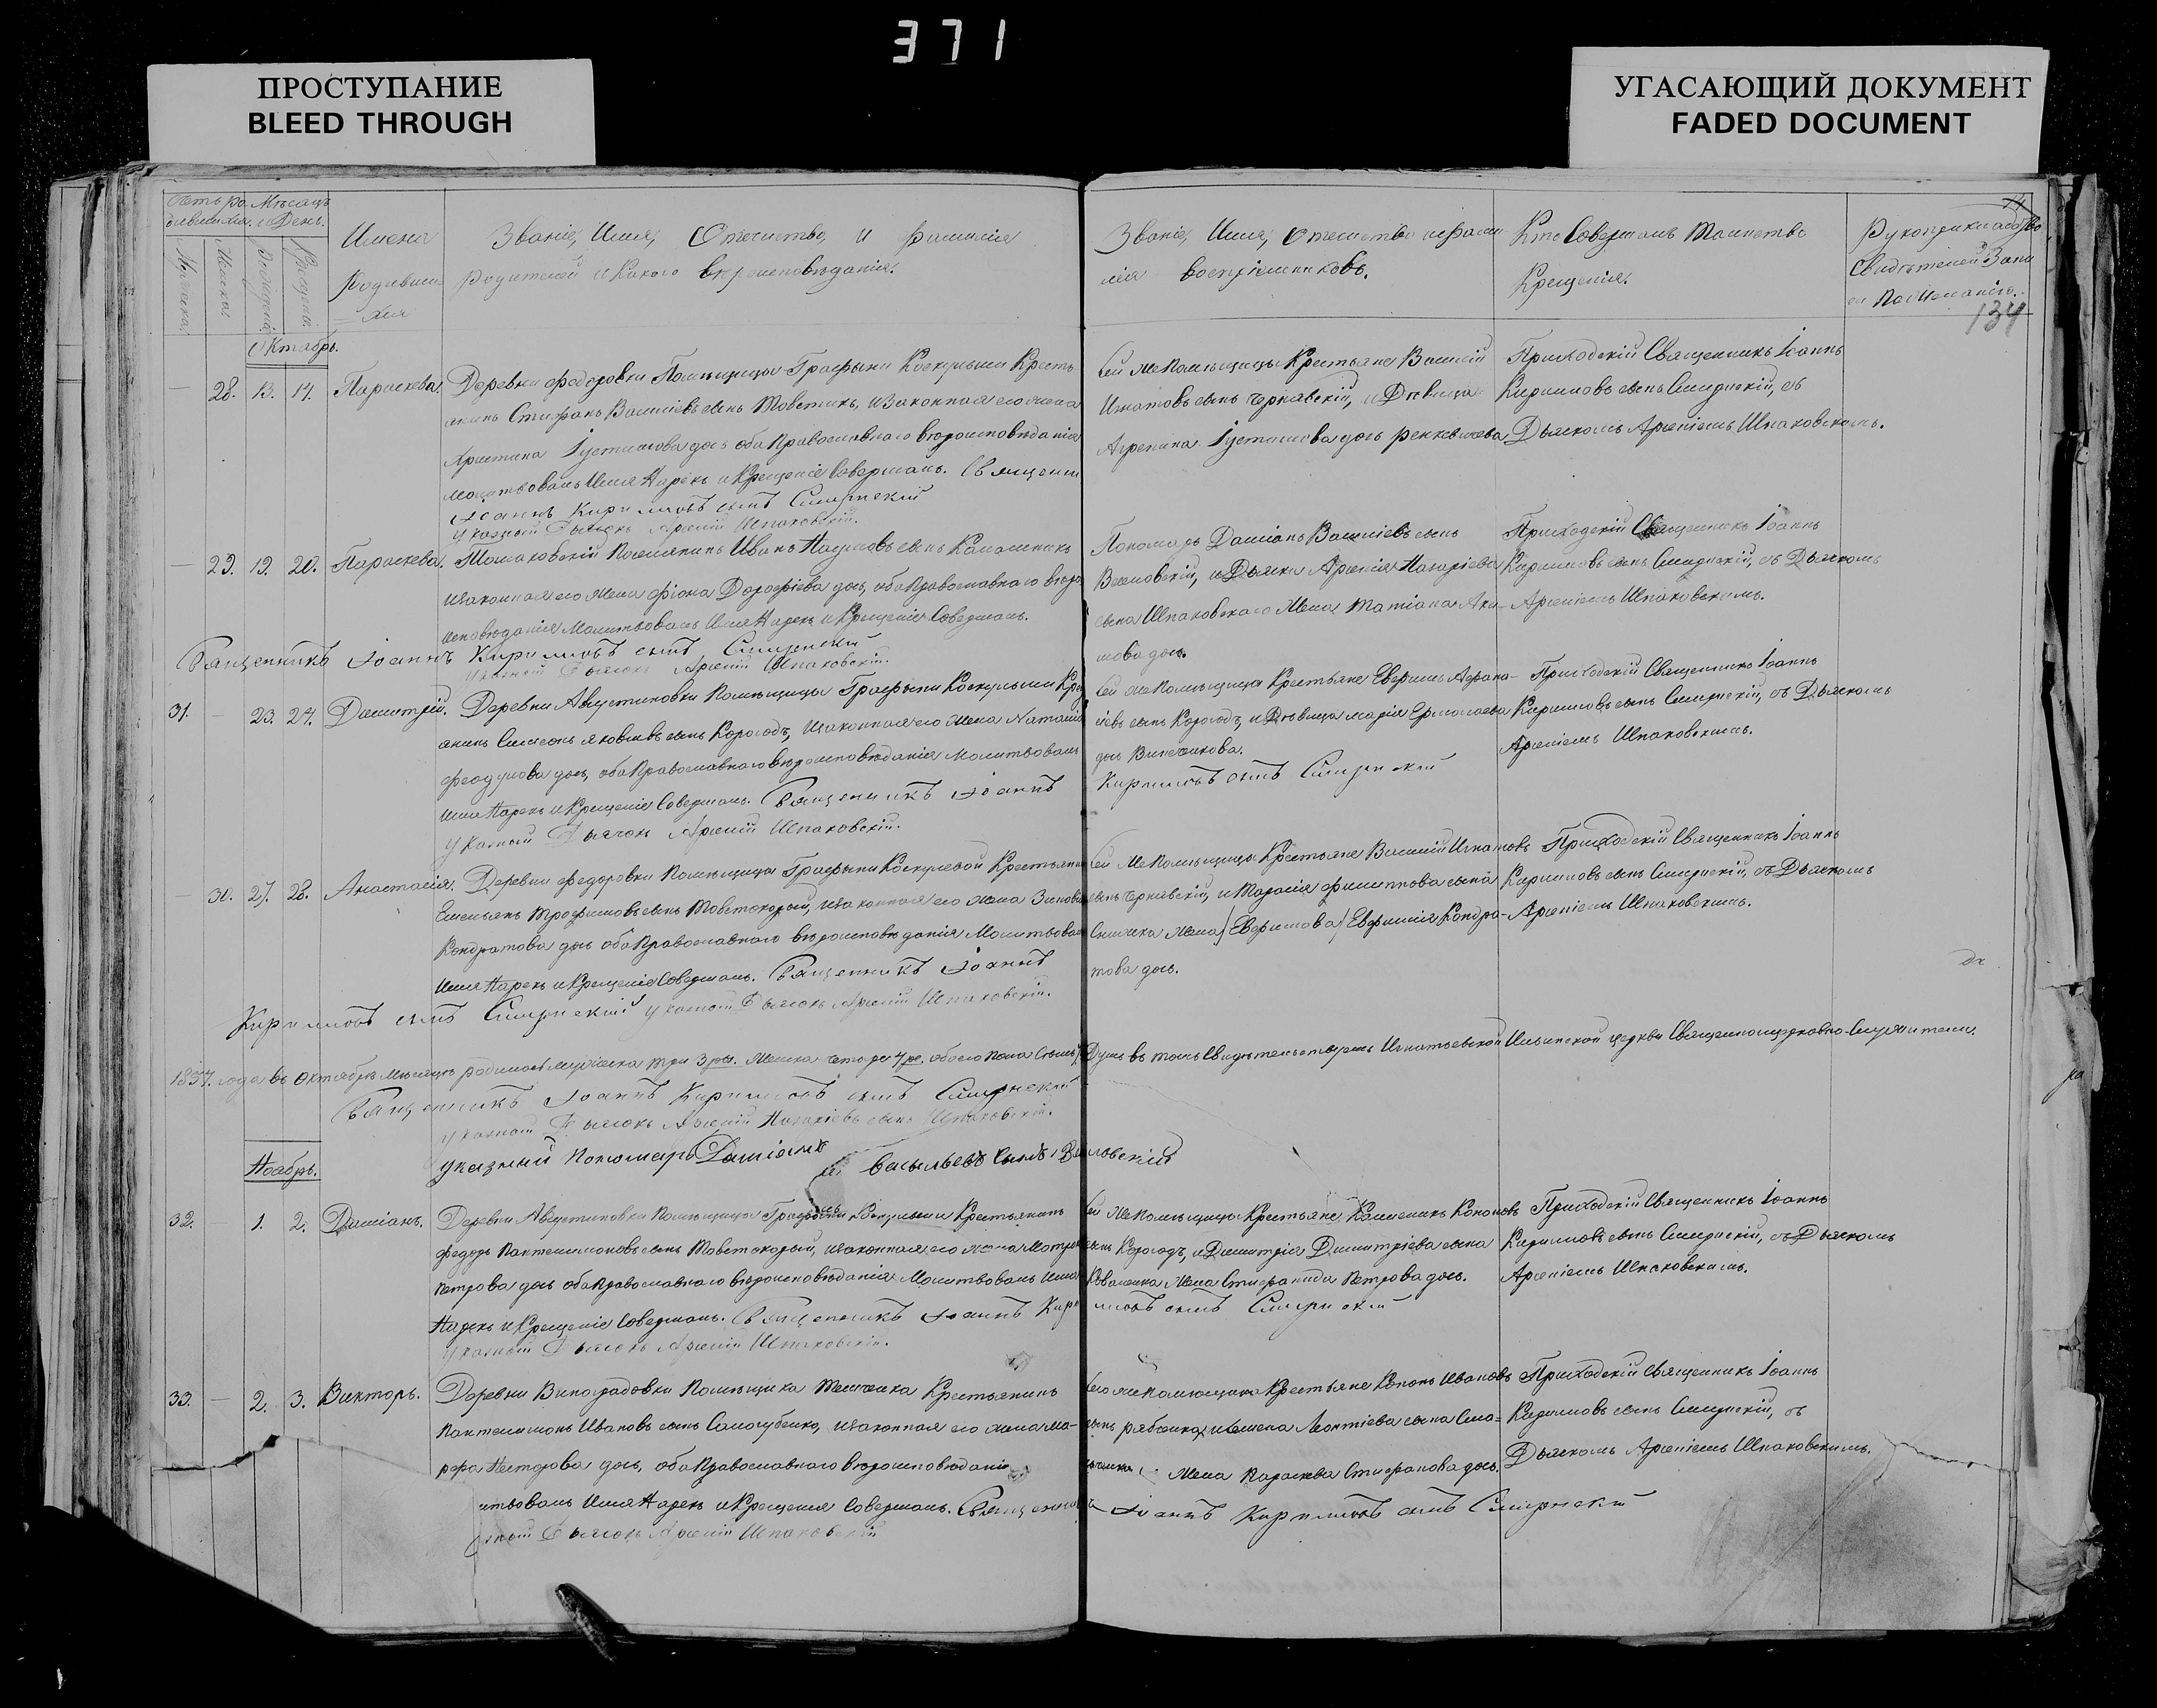 371
ПРОСТУПАНИЕ
BLEED THROUGH
УГАСАЮЩИЙ ДОКУМЕНТ
FADED DOCUMENT
Мѣсяцъ
и День.
Имена
Родивших
ся
Званіе, Имя, Отечество, и Фамилія
родителей и какого вѣроисповѣданія.
Званіе, Имя, Отечество и фами
лія воспріемниковъ.
Кто Совершалъ Таинство
Крещенія.
Рукоприкладство
Свидѣтелей Запи
си по Желанію.
134
Октябрь.
28. 13. 14. Параскева. Деревни Федоровки Помѣщицы Графыни Крестъ
янинъ Стефанъ Василіевъ сынъ Товстикъ, и законная его жена
Христина Іустинова дочь оба Православнаго вѣроисповѣданія
молитвовалъ Имя Нарекъ и Крещеніе Совершалъ. Священни
Іоаннъ Кирилловъ сынъ Смирнскій
указный Дьячокъ Арсеній Шпаковскій.
Сей же Помѣщицы Крестьяне Василій
Игнатовъ сынъ Чернявскій, и Дѣвица
Агрепина Іустинова дочь
Приходскій Священникъ Іоаннъ
Кирилловъ сынъ Смирнскій, съ
Дьячкомъ Арсеніемъ Шпаковскимъ.
29. 19. 20. Параскева. Иванъ Наумовъ сынъ
и законная его жена Фіона Дорофіева дочь, оба Православнаго вѣро
исповѣданія Молитвовалъ Имя Нарекъ и Крещеніе Совершалъ.
Священникъ Іоаннъ Кирилловъ сынъ Смирнскій
указный Дьячокъ Арсеній Шпаковскій.
Пономарь Даміанъ Василіевъ сынъ
и Дьячка Арсенія Назаріева
сына Шпаковскаго Жена Татіана
дочь.
Приходскій Священникъ Іоаннъ
Кирилловъ сынъ Смирнскій, съ Дьячкомъ
Арсеніемъ Шпаковскимъ.
31. 23. 24. Димитрій. Деревни Августиновки Помѣщицы Графыни Кре
янинъ Симеонъ Яковлевъ сынъ Корогодъ, и законная его Жена Наталія
дочь, оба Православнаго вѣроисповѣданія Молитвовалъ
Имя Нарекъ и Крещеніе Совершалъ. Священникъ Іоаннъ
указный Дьячокъ Арсеній Шпаковскій.
Сей же Помѣщицы Крестьяне Ефимъ Афана-
сіевъ сынъ Корогодъ, и Дѣвица Марія Ермолаева
дочь
Кирилловъ сынъ Смирнскій
Приходскій Священникъ Іоаннъ
Кирилловъ сынъ Смирнскій, съ Дьячкомъ
Арсеніемъ Шпаковскимъ.
30. 27. 28. Анастасія. Деревни Федоровки Помѣщицы Графыни Крестьянин
Емельянъ Трофимовъ сынъ Товстокорый, и законная его жена Зиновія
Кондратова дочь оба Православнаго вѣроисповѣданія Молитвовалъ
Имя Нарекъ и Крещеніе Совершалъ. Священникъ Іоаннъ
Кирилловъ сынъ Смирнскій указный Дьячокъ Арсеній Шпаковскій.
Сей же Помѣщицы Крестьяне Василій Игнатовъ
сынъ Чернявскій, и Тарасія Филиппова сына
Жена Евфимія Кондра-
това дочь.
Приходскій Священникъ Іоаннъ
Кирилловъ сынъ Смирнскій, съ Дьячкомъ
Арсеніемъ Шпаковскимъ.
года въ Октябрѣ Мѣсяцѣ родилось мужеска три 3. Женска четыре 4. обоего пола
Душъ въ томъ Свидѣтельствуемъ Игнатьевской Ильинской церкви Священноцерковно-Служители.
Священникъ Іоаннъ Кирилловъ сынъ Смирнскій
указный Дьячокъ Арсеній Назаріевъ сынъ Шпаковскій.
указный Пономарь Даміанъ Васильевъ сынъ
Ноябрь.
32. 1. 2. Даміанъ. Деревни Августиновки Помѣщицы Графыни Крестьянинъ
Федоръ Пантелимоновъ сынъ Товстокорый, и законная его жена Матрона
Петрова дочь оба Православнаго вѣроисповѣданія Молитвовалъ Имя
Нарекъ и Крещеніе Совершалъ. Священникъ Іоаннъ Кири
указный Дьячокъ Арсеній Шпаковскій.
Сей же Помѣщицы Крестьяне Кононовъ
сынъ Корогодъ, и Димитрія Димитріева сына
Коваленка Жена Стефанида Петрова дочь.
лловъ сынъ Смирнскій
Приходскій Священникъ Іоаннъ
Кирилловъ сынъ Смирнскій, съ Дьячкомъ
Арсеніемъ Шпаковскимъ.
33. 2. 3. Викторъ. Деревни Виноградовки Помѣщика Крестьянинъ
Пантелимонъ Ивановъ сынъ Самогубенко, и законная его жена Ма-
Нестерова дочь, оба Православнаго вѣроисповѣданія
итвовалъ Имя Нарекъ и Крещеніе Совершалъ. Священникъ
Дьячокъ Арсеній Шпаковскій
Сего же Помѣщика Крестьяне Кононъ Ивановъ
сынъ Рябченко, и Леонтіева сына
Жена Параскева Стефанова дочь.
Іоаннъ Кирилловъ сынъ Смирнскій
Приходскій Священникъ Іоаннъ
Кирилловъ сынъ Смирнскій, съ
Дьячкомъ Арсеніемъ Шпаковскимъ.